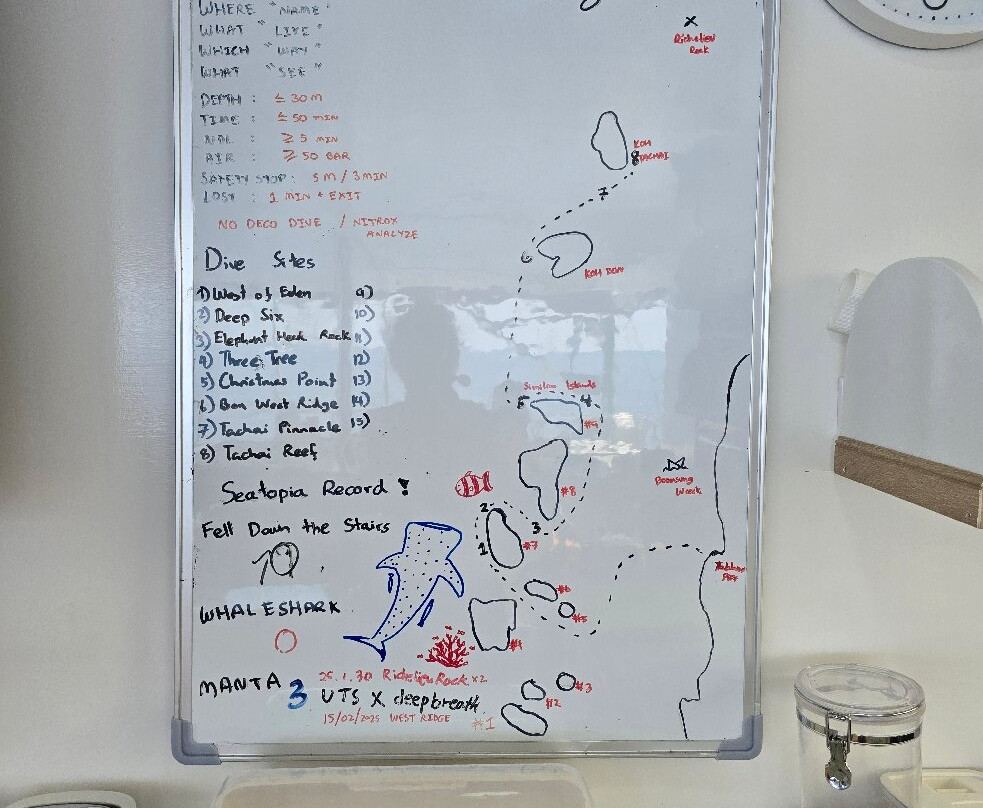 WHERE "NAME"
WHAT "LIVE"
WHICH "WAY"
WHAT "SEE"
DEPTH : ≤ 30 M
TIME : ≤ 50 MIN
NDL : ≥ 5 MIN
AIR : ≥ 50 BAR
SAFETY STOP : 5 M / 3 MIN
LOST : 1 MIN + EXIT
NO DECO DIVE / NITROX
ANALYZE
Dive Sites
1) West of Eden 9)
2) Deep Six 10)
3) Elephant Head Rock 11)
4) Three Tree 12)
5) Christmas Point 13)
6) Bon West Ridge 14)
7) Tachai Pinnacle 15)
8) Tachai Reef
Seatopia Record !
Fell Down the Stairs
WHALESHARK
0
MANTA 3
25.1.30 Richelieu Rock x2
UTS X deepbreath
15/02/2025 WEST RIDGE
x
Richelieu
Rock
KOH
8 TACHAI
7
6
KOH BON
Similan Islands
5 4
#9
#8
Boonsung
Wreck
2
3
1
#7
#6
#5
#4
#3
#2
#1